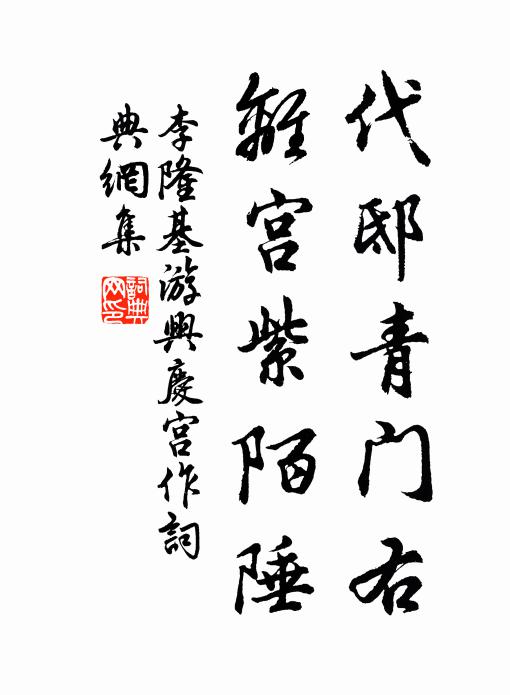 代邸青门右
離宫紫陌陲
李隆基游興慶宫作詞
典網集
詞典网印